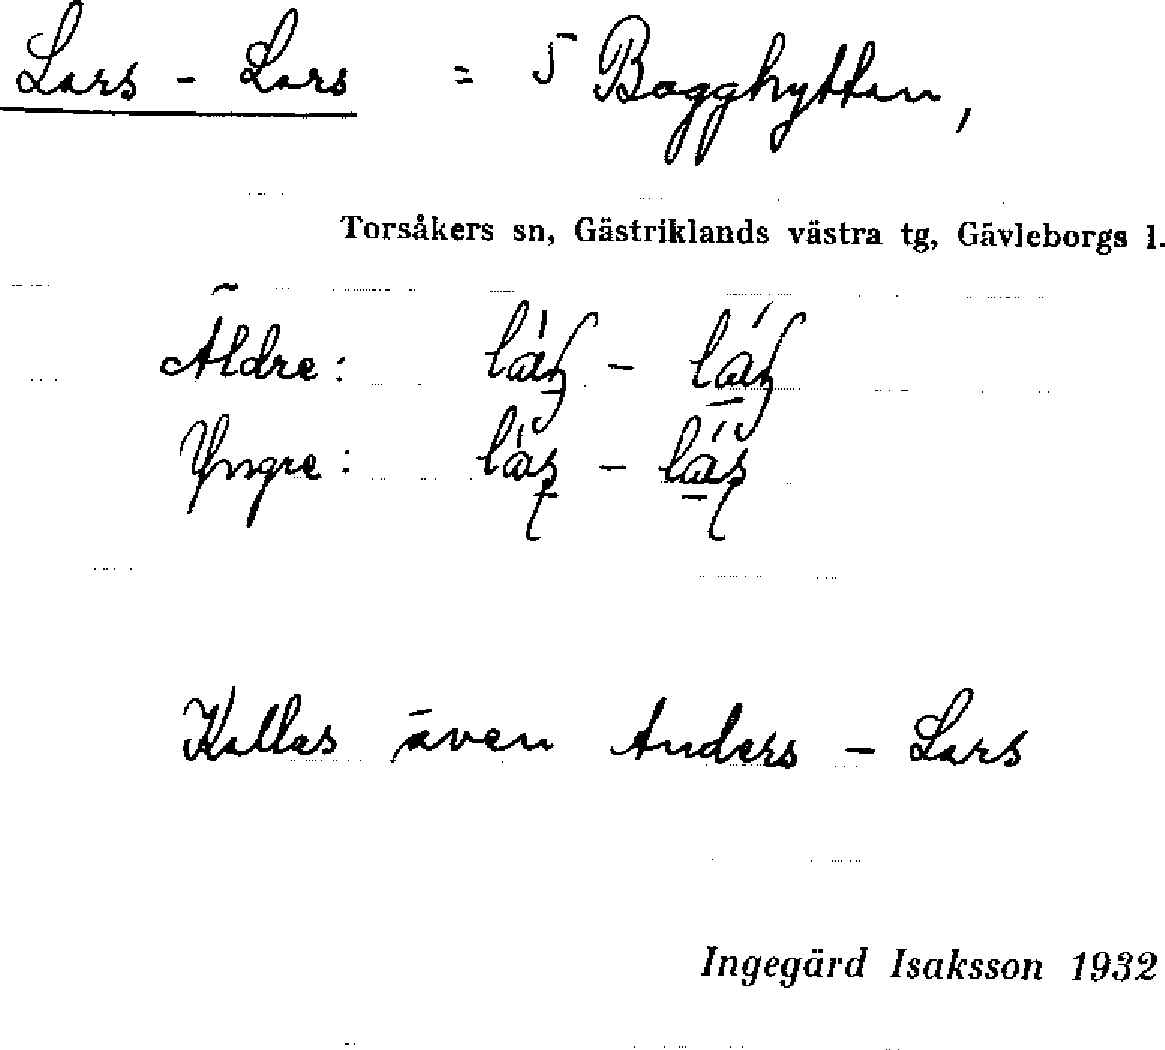 Lars - Lars = 5 Bagghyttan,
Torsåkers sn, Gästriklands västra tg, Gävleborgs l.
Äldre:
Yngre:
Kallas även Anders - Lars
Ingegärd Isaksson 1932